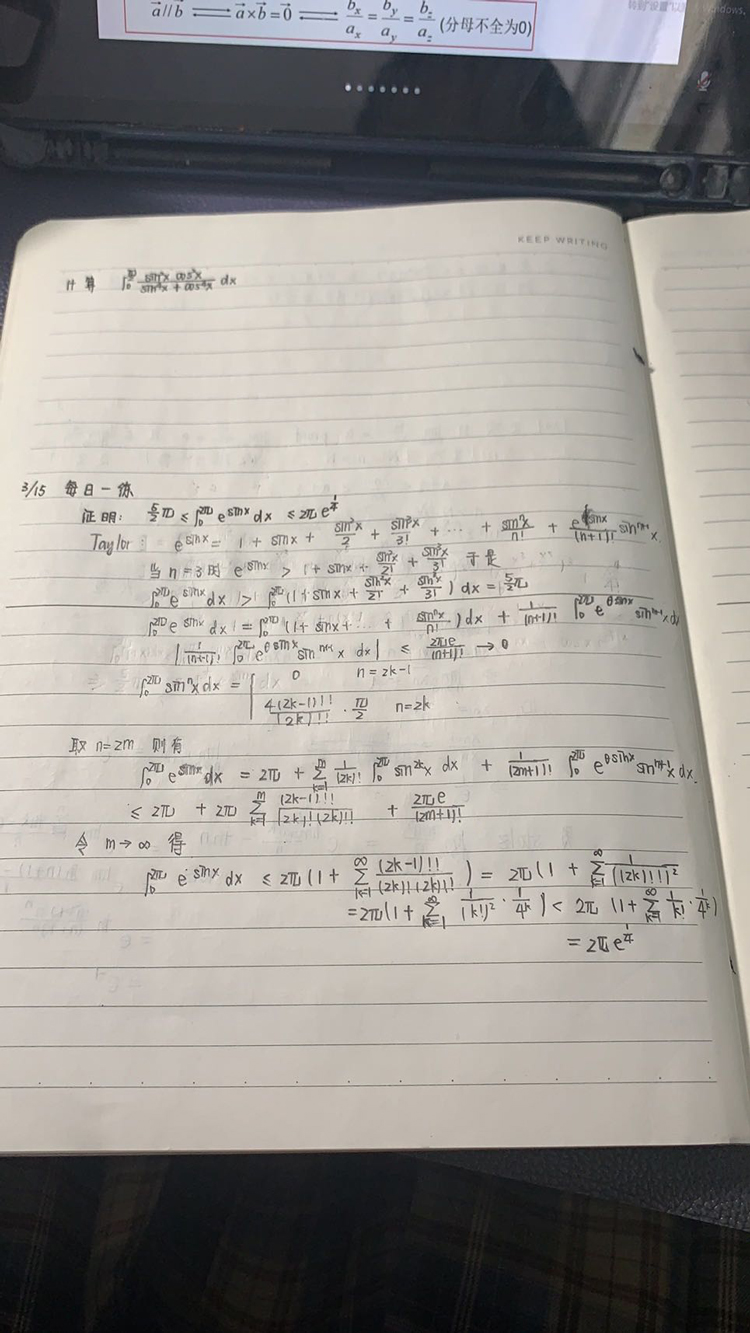 a⃗//b⃗ ⟺ a⃗×b⃗=0⃗ ⟺ b_x/a_x = b_y/a_y = b_z/a_z (分母不全为0)
KEEP WRITING
计算 ∫₀^{π/2} dx
3/15 每日一练
证明: 5/2 π ≤ ∫₀^{2π} e^{sinx} dx ≤ 2π e^{1/4}
Taylor: e^{sinx} = 1 + sinx + sin²x/2 + sin³x/3! + ⋯ + sinⁿx/n! + e^{θsinx}/(n+1)! sin^{n+1}x.
当 n=3时 e^{sinx} > 1 + sinx + sin²x/2! + sin³x/3! 于是
∫₀^{2π} e^{sinx} dx > ∫₀^{2π} (1 + sinx + sin²x/2! + sin³x/3!) dx = 5/2 π
∫₀^{2π} e^{sinx} dx = ∫₀^{2π} (1 + sinx + ⋯ + sinⁿx/n!) dx + 1/(n+1)! ∫₀^{2π} e^{θsinx} sin^{n+1}x dx
|1/(n+1)! ∫₀^{2π} e^{θsinx} sin^{n+1}x dx| ≤ 2πe/(n+1)! → 0
∫₀^{2π} sinⁿx dx = { 0 n=2k-1
4(2k-1)!!/(2k)!! · π/2 n=2k
取 n=2m 则有
∫₀^{2π} e^{sinx} dx = 2π + Σ_{k=1}^{m} 1/(2k)! ∫₀^{2π} sin^{2k}x dx + 1/(2m+1)! ∫₀^{2π} e^{θsinx} sin^{n+1}x dx.
≤ 2π + 2π Σ_{k=1}^{m} (2k-1)!!/(2k)!(2k)!! + 2πe/(2m+1)!
令 m→∞ 得
∫₀^{2π} e^{sinx} dx ≤ 2π(1 + Σ_{k=1}^{∞} (2k-1)!!/(2k)!(2k)!!) = 2π(1 + Σ_{k=1}^{∞} 1/((2k)!!)²
= 2π(1 + Σ_{k=1}^{∞} 1/(k!)² · 1/4^k) < 2π (1 + Σ_{k=1}^{∞} 1/k! · 1/4^k)
= 2πe^{1/4}